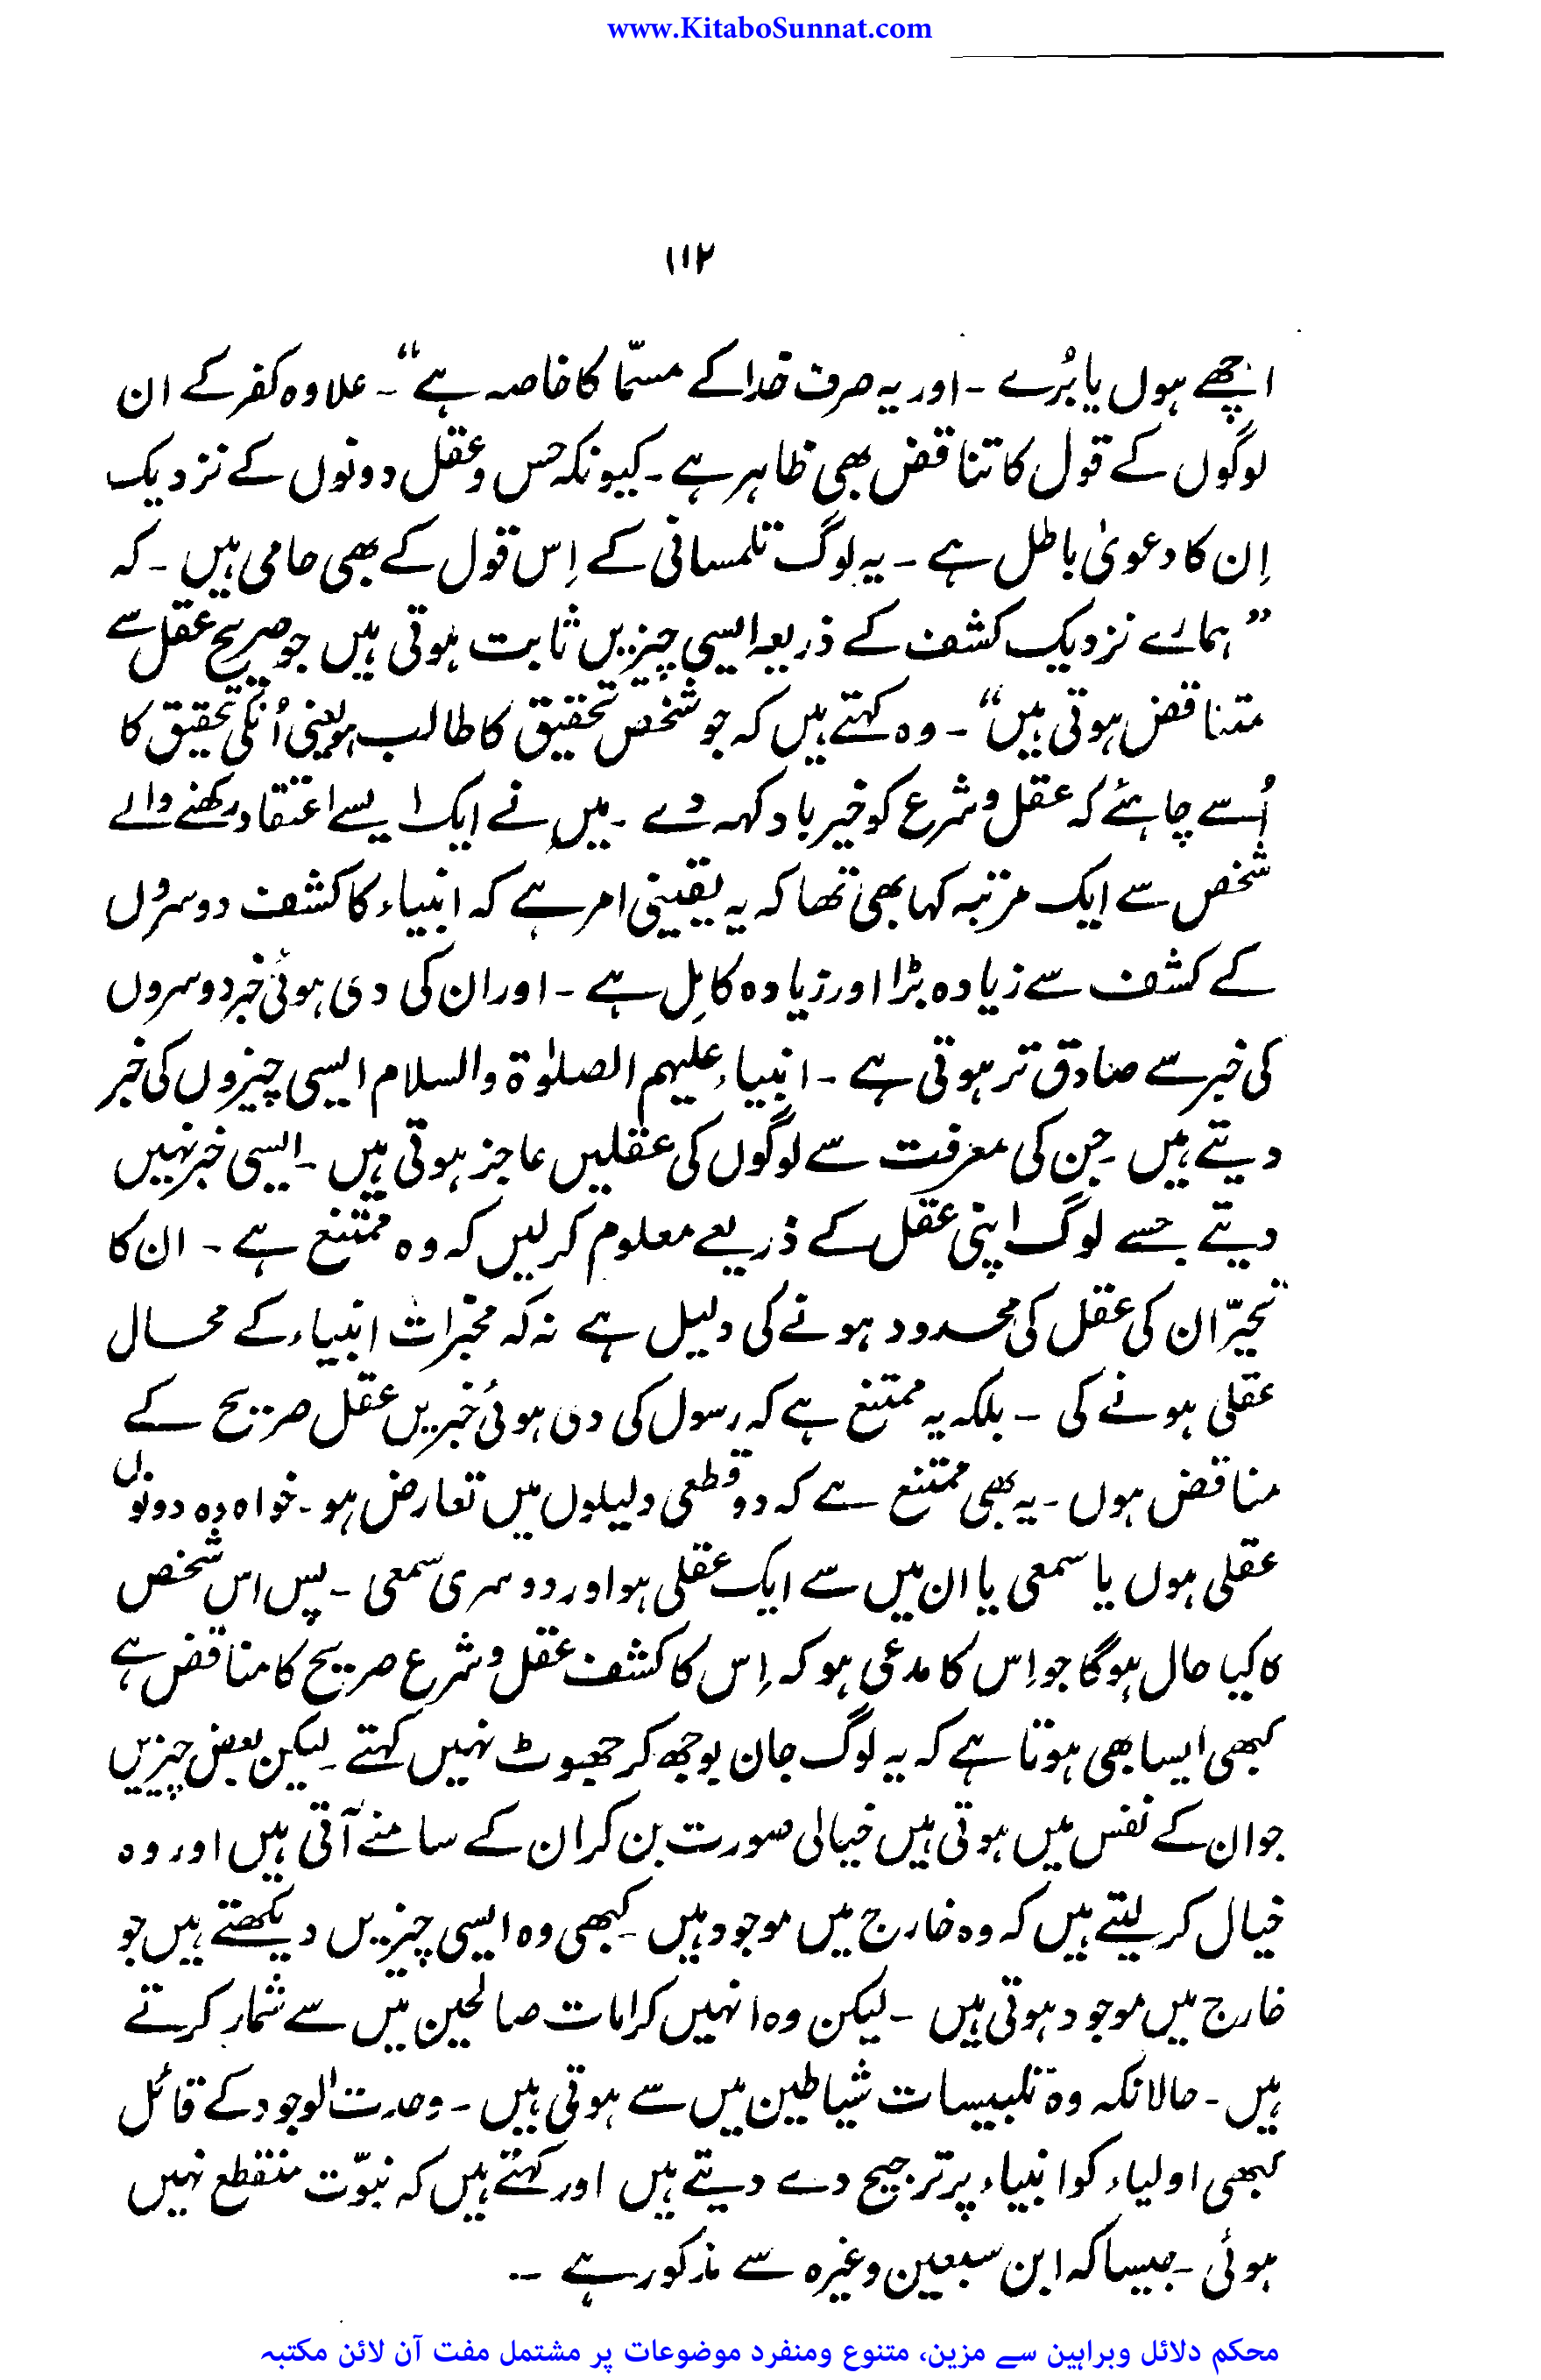 www.KitaboSunnat.com
۱۱۲
اچھے ہوں یا بُرے ۔ اور یہ صرف خدا کے مسمّا کا خاصہ ہے“ ۔ علاوہ کفر کے ان
لوگوں کے قول کا تناقض بھی ظاہر ہے ۔ کیونکہ حس و عقل دونوں کے نزدیک
اِن کا دعویٰ باطل ہے ۔ یہ لوگ تلمسانی کے اِس قول کے بھی حامی ہیں ۔ کہ
”ہمارے نزدیک کشف کے ذریعہ ایسی چیزیں ثابت ہوتی ہیں جو صریح عقل سے
متناقض ہوتی ہیں“ ۔ وہ کہتے ہیں کہ جو شخص تحقیق کا طالب ہو یعنی اُنکی تحقیق کا
اُسے چاہئے کہ عقل و شرع کو خیر باد کہہ دے ۔ میں نے ایک ایسے اعتقاد رکھنے والے
شخص سے ایک مرتبہ کہا بھی تھا کہ یہ یقینی امر ہے کہ انبیاء کا کشف دوسروں
کے کشف سے زیادہ بڑا اور زیادہ کامِل ہے ۔ اور ان کی دی ہوئی خبر دوسروں
کی خبر سے صادق تر ہوتی ہے ۔ انبیاء علیہم الصلوٰۃ والسلام ایسی چیزوں کی خبر
دیتے ہیں ۔ جن کی معرفت سے لوگوں کی عقلیں عاجز ہوتی ہیں ۔ ایسی خبر نہیں
دیتے جسے لوگ اپنی عقل کے ذریعے معلوم کرلیں کہ وہ ممتنع ہے ۔ ان کا
تحیّر ان کی عقل کی محدود ہونے کی دلیل ہے نہ کہ مخبرات انبیاء کے محال
عقلی ہونے کی ۔ بلکہ یہ ممتنع ہے کہ رسول کی دی ہوئی خبریں عقل صریح کے
مناقض ہوں ۔ یہ بھی ممتنع ہے کہ دو قطعی دلیلوں میں تعارض ہو ۔ خواہ وہ دونوں
عقلی ہوں یا سمعی یا ان میں سے ایک عقلی ہو اور دوسری سمعی ۔ پس اس شخص
کا کیا حال ہوگا جو اِس کا مدعی ہو کہ اِس کا کشف عقل و شرع صریح کا مناقض ہے
کبھی ایسا بھی ہوتا ہے کہ یہ لوگ جان بوجھ کر جھوٹ نہیں کہتے ۔ لیکن بعض چیزیں
جو ان کے نفس میں ہوتی ہیں خیالی صورت بن کر ان کے سامنے آتی ہیں اور وہ
خیال کر لیتے ہیں کہ وہ خارج میں موجود ہیں ۔ کبھی وہ ایسی چیزیں دیکھتے ہیں جو
خارج میں موجود ہوتی ہیں ۔ لیکن وہ انہیں کرامات صالحین میں سے شمار کرتے
ہیں ۔ حالانکہ وہ تلبیسات شیاطین میں سے ہوتی ہیں ۔ وحدت الوجود کے قائل
کبھی اولیاء کو انبیاء پر ترجیح دے دیتے ہیں اور کہتے ہیں کہ نبوّت منقطع نہیں
ہوئی ۔ جیسا کہ ابن سبعین وغیرہ سے مذکور ہے ۔۔
محکم دلائل وبراہین سے مزین، متنوع ومنفرد موضوعات پر مشتمل مفت آن لائن مکتبہ